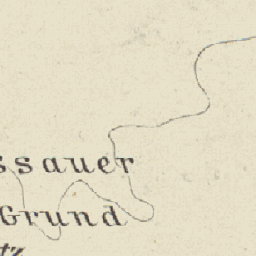 ssauer
Grund
tz